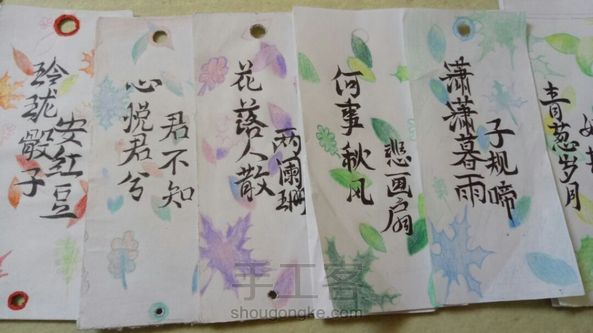 玲珑骰子
安红豆
心悦君兮
君不知
花落人散
两澜珊
何事秋风
悲画扇
潇潇暮雨
子规啼
青葱岁月
手工客
shougongke.com